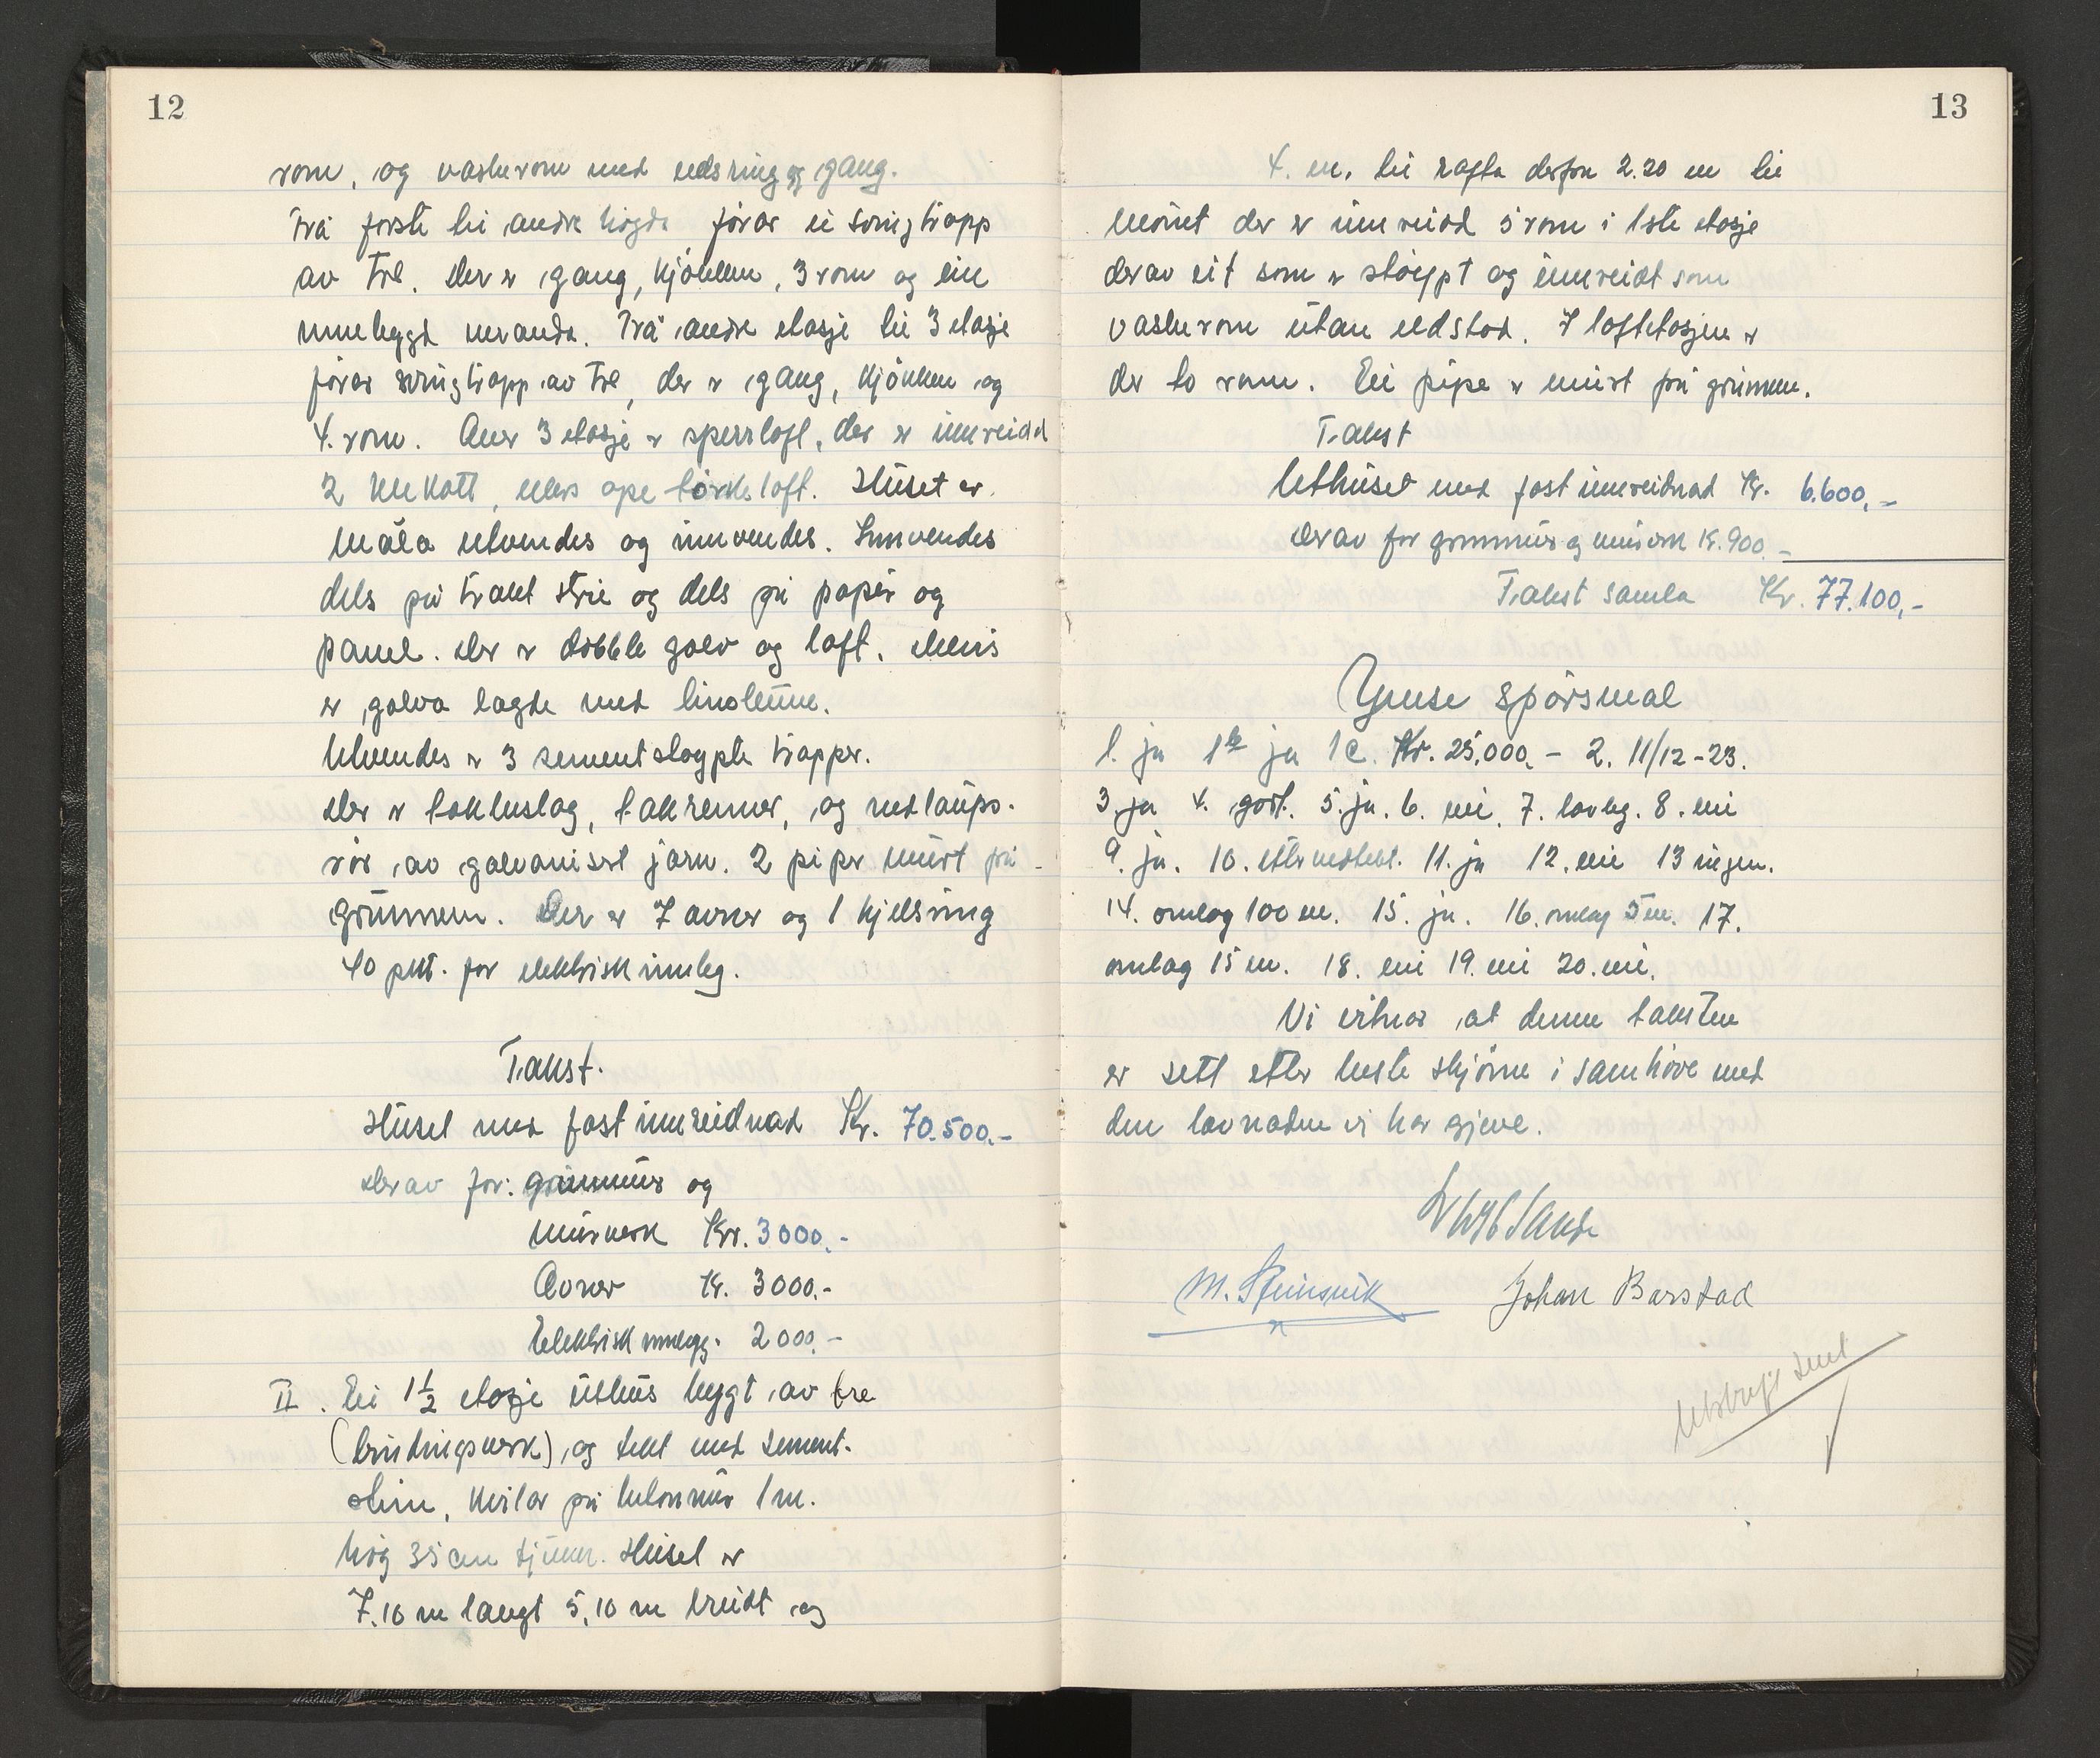 12
rom, og vaskerom med eldsring og gang.
Frå fyrste til andre högda förer ei svingtrapp
av tre. Der er gang, kjökken, 3 rom og ein
innebygd veranda. Frå andre etasje til 3 etasje
förer svingtrapp av tre, der er gang, kjökken og
4. rom. Over 3 etasje er sperrloft, der er innreidd
2 kvekott, ellers ope törkeloft. Huset er
måla utvendes og innvendes. Innvendes
dels på trekt strie og dels på papér og
panel. Der er dobble golv og loft.
er golva lagde med linoleum.
Utvendes er 3 sementstøypte trapper.
Der er taktuslag, takrenner, og nedlaups-
rör av galvanisert jarn. 2 piper murt frå
grunnen. Der er 7 omner og 1 kjelering
40 pkt. for elektrisk innleg.
Takst.
Huset med fast innreidnad Kr. 70.500.-
derav for: grunnmur og
murverk Kr. 3000.-
Omner Kr. 3000.-
Elektrisk innlegg. 2000.-
II. Ei 1½ etasje uthus bygt av tre
(bindingsverk), og tekt med sement-
skive, kviler på betonmur 1 m.
høg 35 cm tjukk. Huset er
7.10 m langt 5,10 m breidt og
13
4. m. til rafta derfra 2.20 m til
mönet der er innreidd 5 rom i 1ste etasje
derav eit som er støypt og innreidt som
vaskerom utan eldstad. I loftetasjen er
der to rom. Ei pipe er murt frå grunnen.
Takst
Uthuset med fast innreidnad Kr. 6.600,-
derav for grunnmur og murverk Kr. 900.-
Takst samla Kr. 77.100,-
Ymse spörsmal
1. ja 1b ja 1c. Kr. 25.000.- 2. 11/12-23.
3. ja 4. godt. 5. ja. 6. nei. 7. lovleg. 8. nei
9. ja. 10. 11. ja 12. nei 13 ingen.
14. omlag 100 m. 15. ja. 16. omlag 5 m. 17.
omlag 15 m. 18. nei 19. nei 20. nei.
Vi vitnar at denne taksten
er sett etter beste skjönn i samhöve med
den lovnaden vi har gjeve.
Sande
M. Steinsvik Johan Barstad
Utskrift sent